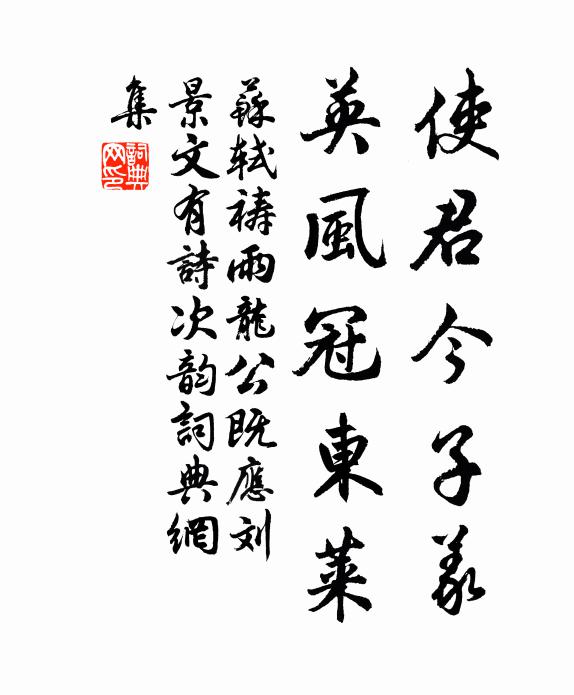 使君今子義
英風冠東萊
蘇軾禱雨龍公既應刘
景文有詩次韵詞典網
集
詞典
网印